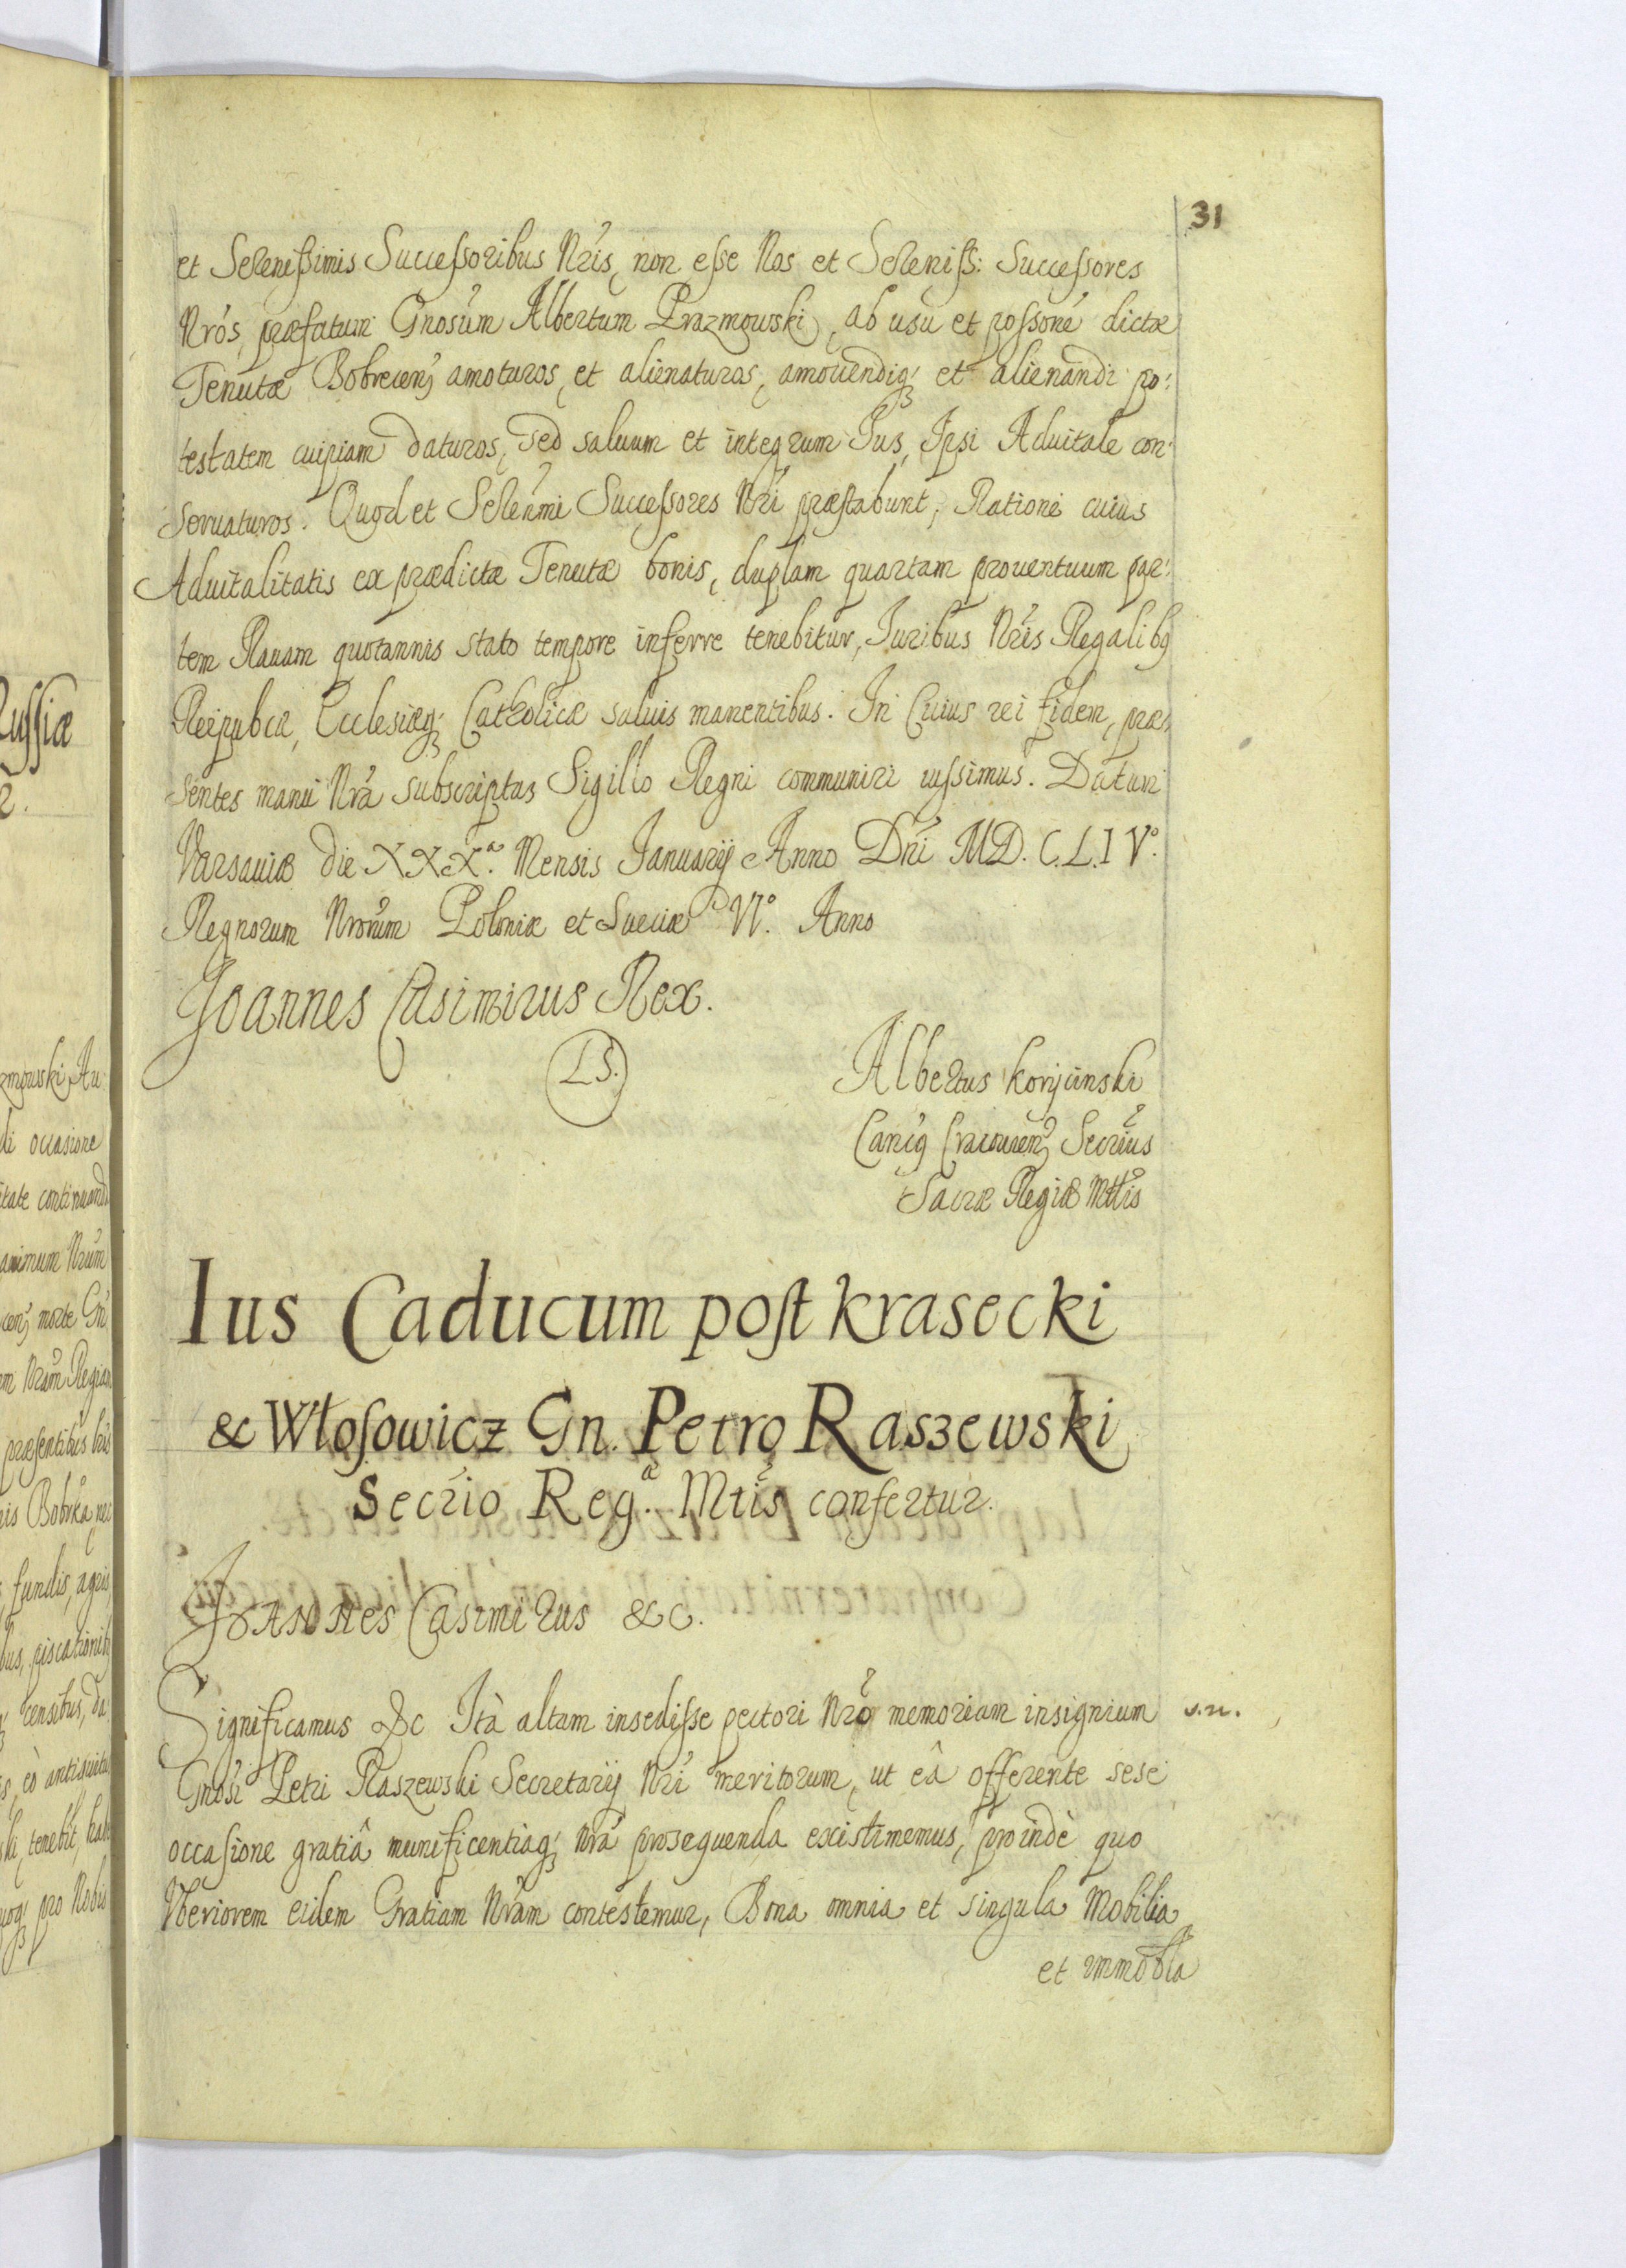 31
et Serenissimis Successoribus Nris, non esse Nos et Sereniss: Successores
Nrós, præfatum Gnosum Albertum Prazmowski, ab usu et possoné dictæ
Tenutæ Bobrecen̄ amoturos, et alienaturos, amouendiq́ et alienandi po:
testatem cuipiam daturos, sed saluum et integrum Ius, Ipsi Aduitale con:
seruaturos. Quod et Serenmi Successores Nri præstabunt, Ratione cuius
Aduitalitatis ex prædictæ Tenutæ bonis, duplam quartam prouentuum par:
tem Rauam quotannis stato tempore inferre tenebitur, Iuribus Nris Regalibq
Reipubcæ, Ecclesiæq́ Catholicæ saluis manentibus. In Cuius rei fidem, præ:
sentes manu Nrá subscriptas Sigillo Regni communiri iussimus. Datum
Varsauiæ die XXXa. Mensis Ianuarij Anno Dni MD.C.L.I Vo.
Regnorum Nrorum Poloniæ et Sueciæ VIo. Anno
Joannes Casimirus Rex.
LS.
Albertus Koryciński
Cancq Cracouien̄ Secrius
Sacræ Regiæ Mttis
Ius Caducum post Krasecki
& Włosowicz Gn. Petro Raszewski
Secrio Rega. Mtis confertur.
Joannes Casimirus &c.
Significamus &c Ità altam insedisse pectori Nro memoriam insignium
s.n.
Gnosi Petri Raszewski Secretarij Nri meritorum, ut eâ offerente sese
occasione gratiâ munificentiaq́ nrá prosequenda existimemus, proindè quo
Vberiorem eidem Gratiam Nram contestemur, Bona omnia et singula Mobilia
et immobla
ussiæ
zmowski Au
di occasione
itate continuandi
animum Nrum
cen̄ morte Gn
m Nram Regiam
præsentibus
is Bobrka nec
fundis, agris
bus, piscationib
censibus, da
eò antiquitu
ki, tenebit, hab
pro Nobis